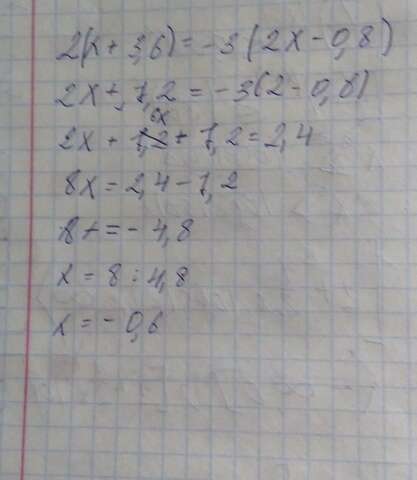 2(x + 3,6) = -3(2x - 0,8)
2x + 7,2 = -3(2 - 0,8)
6x
2x + 7,2 = 2,4
8x = 2,4 - 7,2
8x = - 4,8
x = 8 : 4,8
x = - 0,6